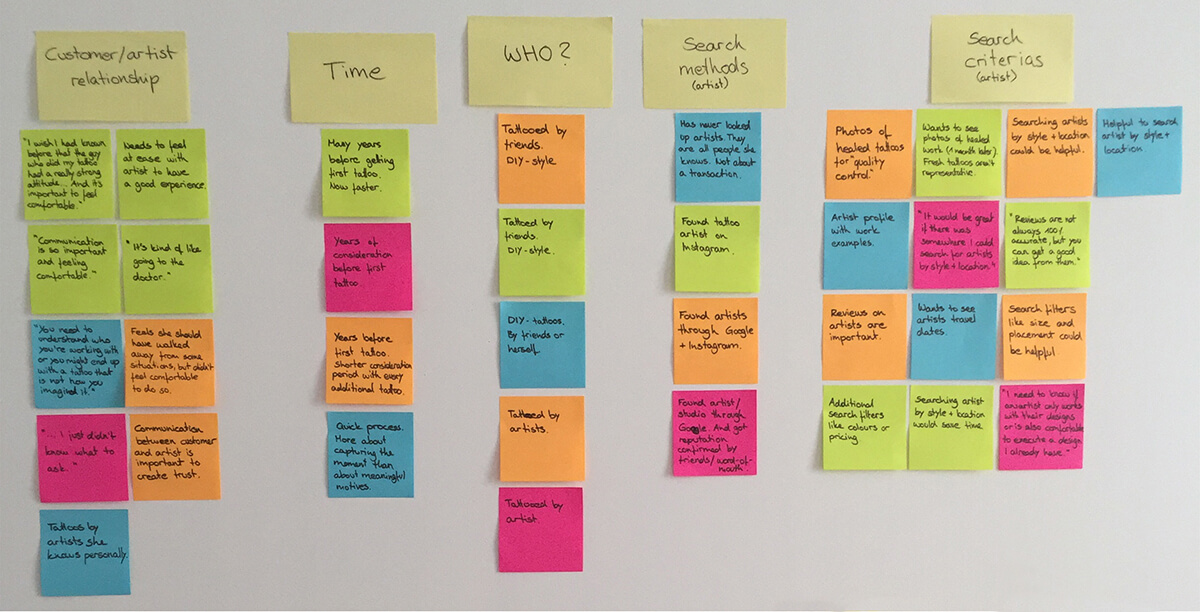 Customer/artist
relationship
"I wish I had known
before that the guy
who did my tattoo
had a really strong
attitude... And it's
important to feel
comfortable."
Needs to feel
at ease with
artist to have
a good experience.
"Communication
is so important
and feeling
comfortable"
"It's kind of like
going to the
doctor."
"You need to
understand who
you're working with
or you might end up
with a tattoo that
is not how you
imagined it."
Feels she should
have walked
away from some
situations, but didn't
feel comfortable
to do so.
"... I just didn't
know what to
ask."
Communication
between customer
and artist is
important to
create trust.
Tattoos by
artists she
knows personally.
Time
Many years
before getting
first tattoo.
Now faster.
Years of
consideration
before first
tattoo.
Years before
first tattoo.
Shorter consideration
period with every
additional tattoo.
Quick process.
More about
capturing the
moment than
about meaningful
motives.
WHO?
Tattooed by
friends.
DIY-style
Tattooed by
friends.
DIY-style.
DIY-tattoos.
By friends or
herself.
Tattooed by
artists.
Tattooed by
artist.
Search
methods
(artist)
Has never looked
up artists. They
are all people she
knows. Not about
a transaction.
Found tattoo
artist on
Instagram.
Found artists
through Google
+ Instagram.
Found artist/
studio through
Google. And got
reputation
confirmed by
friends/word-of-
mouth.
Search
criterias
(artist)
Photos of
healed tattoos
for "quality
control."
Wants to see
photos of healed
work (1 month later).
Fresh tattoos aren't
representative.
Searching artists
by style + location
could be helpful.
Helpful to search
artist by style +
location
Artist profile
with work
examples.
"It would be great
if there was
somewhere I could
search for artists
by style + location"
"Reviews are not
always 100%
accurate, but you
can get a good
idea from them."
Reviews on
artists are
important.
Wants to see
artists travel
dates.
Search filters
like size and
placement could
be helpful
Additional
search filters
like colours or
pricing
Searching artist
by style + location
would save time.
"I need to know if
an artist only works
with their designs
or is also comfortable
to execute a design
I already have."